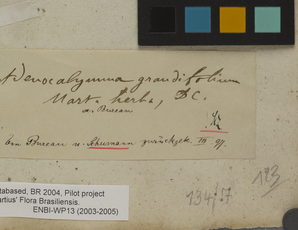 Adenocalymna grandifolium
Mart. herb., DC.
Bureau
bon Bureau u. Schumann zurückgek. III 97.
tabased, BR 2004, Pilot project
artius' Flora Brasiliensis.
ENBI-WP13 (2003-2005)
193